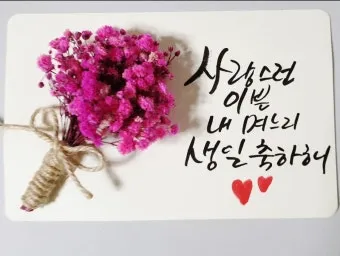 사랑스런
이쁜
내 며느리
생일 축하해